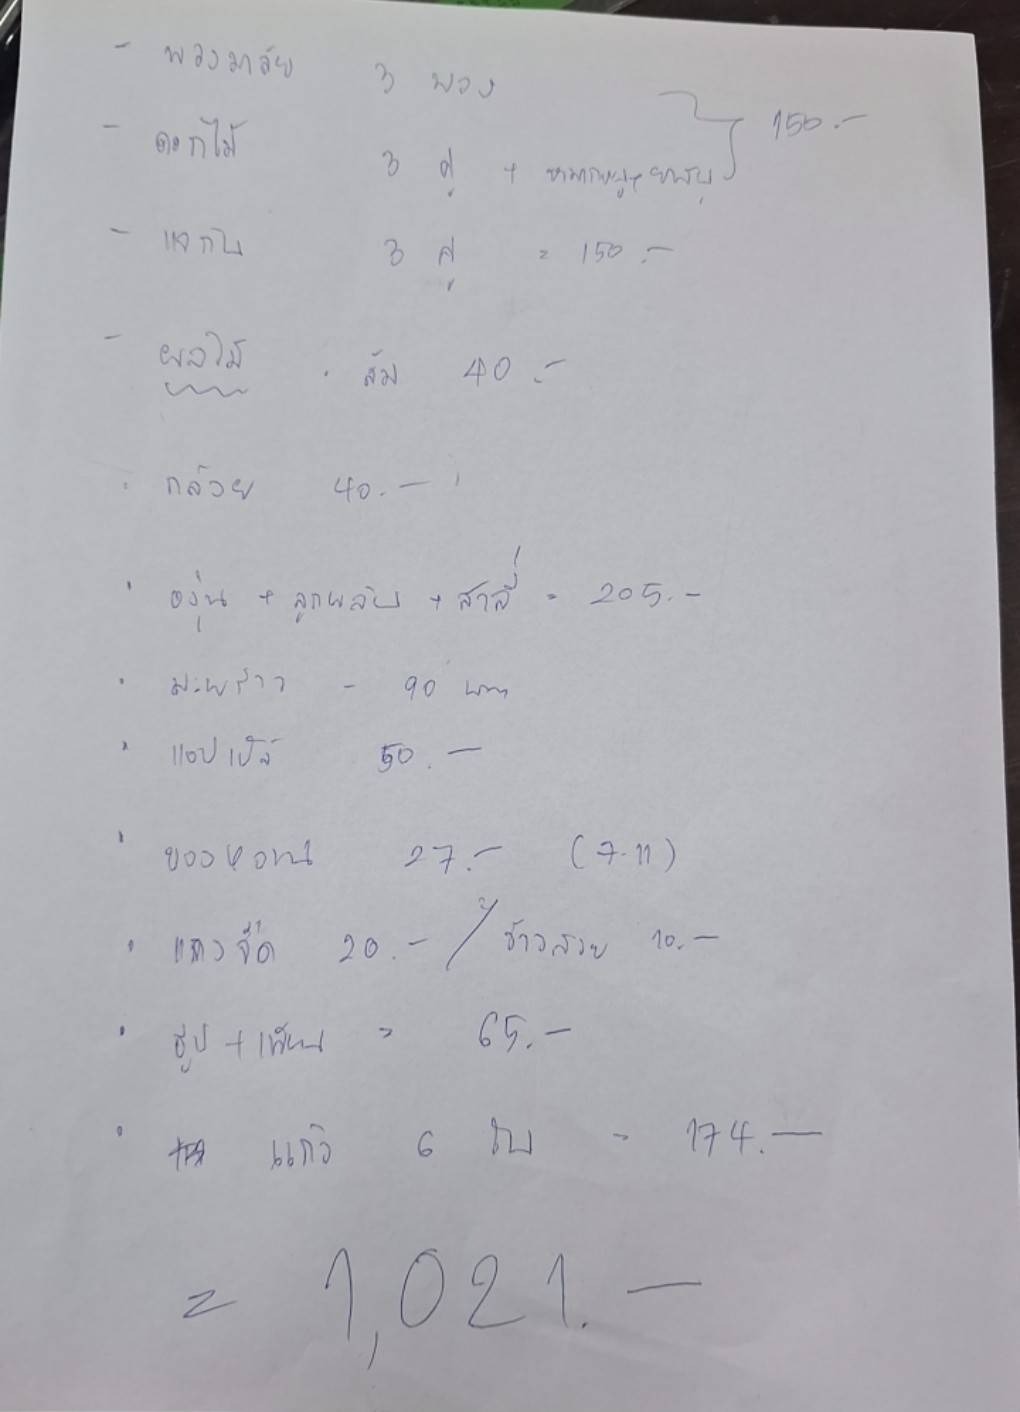 - พวงมาลัย 3 พวง
- ดอกไม้ 3 คู่ + หมากพลู+ยาสูบ } 150.-
- แจกัน 3 คู่ = 150.-
- ผลไม้ · ส้ม 40.-
· กล้วย 40.-
· องุ่น + ลูกพลับ + สาลี่ = 205.-
· มะพร้าว - 90 บาท
· แอปเปิ้ล 50.-
· ของหวาน 27.- (7-11)
· แกงจืด 20.- / ข้าวสวย 10.-
· ธูป + เทียน = 65.-
· แก้ว 6 ใบ = 174.-
= 1,021.-